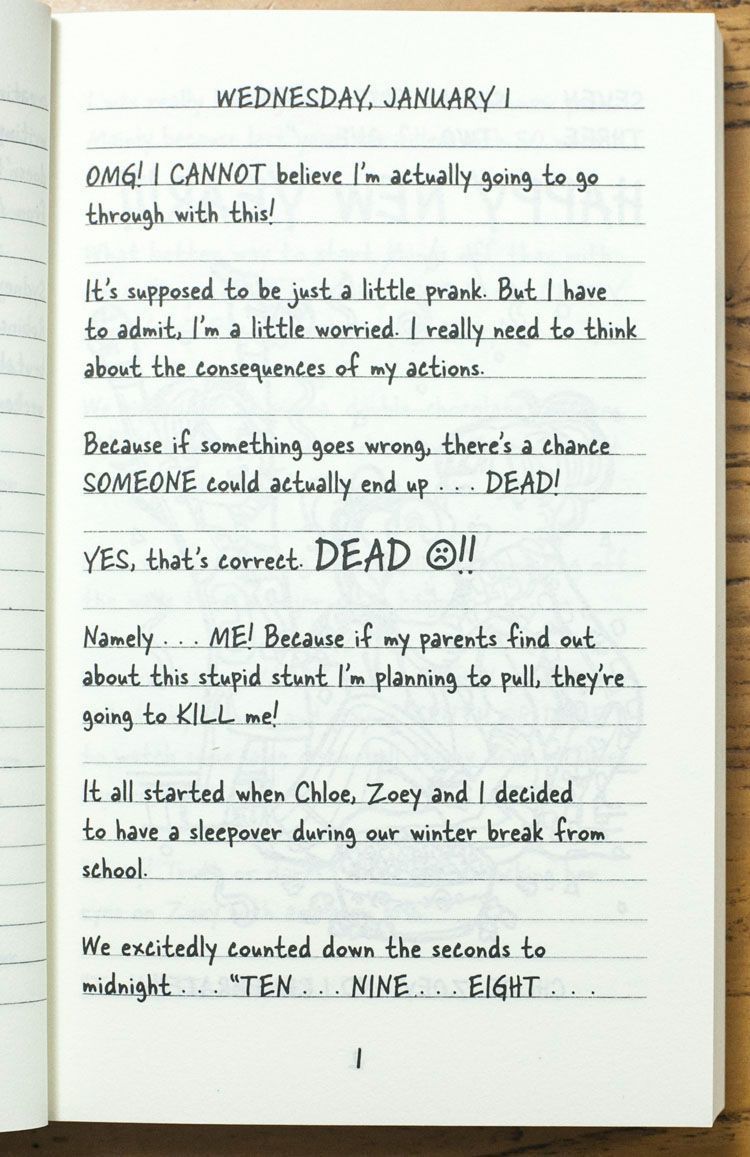 WEDNESDAY, JANUARY 1
OMG! I CANNOT believe I'm actually going to go
through with this!
It's supposed to be just a little prank. But I have
to admit, I'm a little worried. I really need to think
about the consequences of my actions.
Because if something goes wrong, there's a chance
SOMEONE could actually end up . . . DEAD!
YES, that's correct. DEAD ☹!!
Namely . . . ME! Because if my parents find out
about this stupid stunt I'm planning to pull, they're
going to KILL me!
It all started when Chloe, Zoey and I decided
to have a sleepover during our winter break from
school.
We excitedly counted down the seconds to
midnight . . . “TEN . . . NINE . . . EIGHT . . .
1